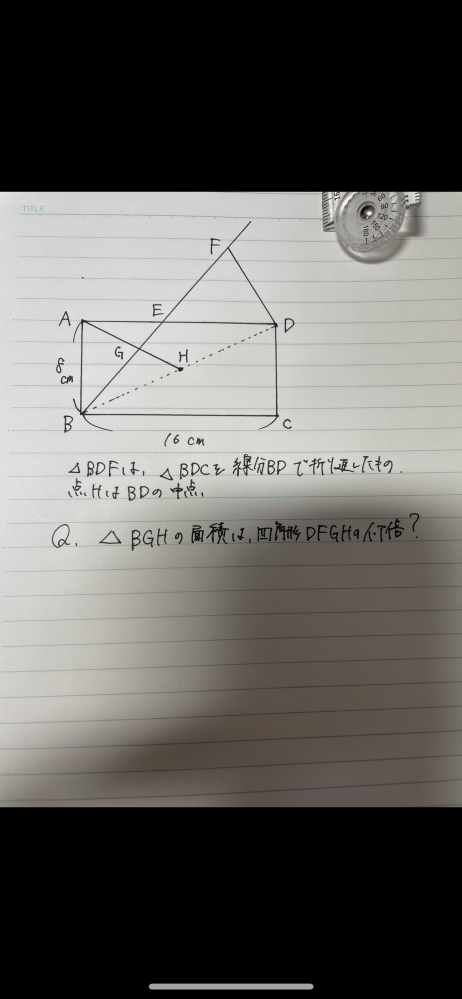 TITLE
F
A
E
D
G
H
8
cm
B
C
16 cm
△BDFは, △BDCを線分BDで折り返したもの.
点HはBDの中点
Q. △BGHの面積は, 四角形DFGHの何倍?